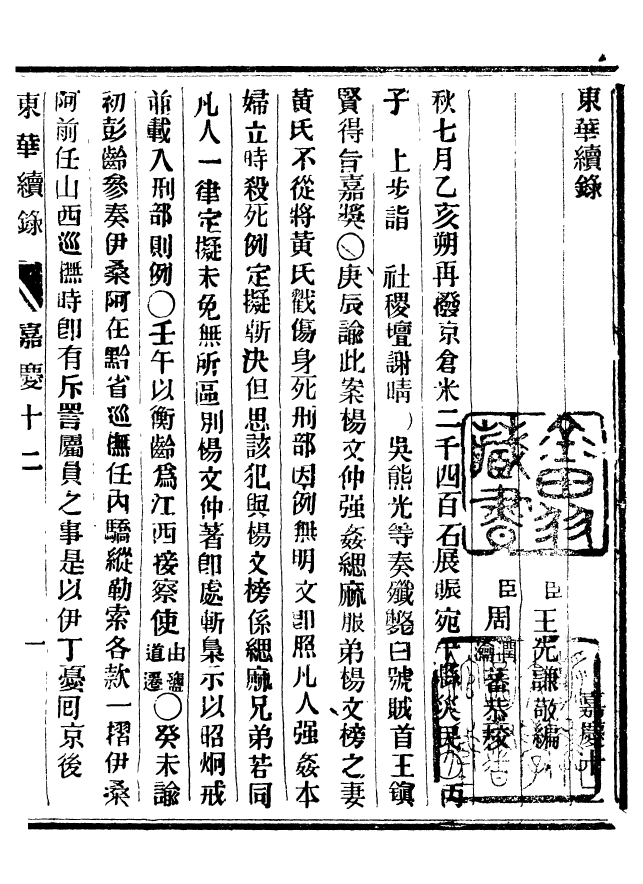 東華續錄
嘉慶十二
臣王先謙敬編
臣周潤蕃恭校
秋七月乙亥朔再撥京倉米二千四百石展賑宛平縣災民〇丙
子　上步詣　社稷壇謝晴〇吳熊光等奏殲斃白號賊首王鎭
賢得旨嘉奬〇庚辰諭此案楊文仲强姦緦麻服弟楊文榜之妻
黃氏不從將黃氏戳傷身死刑部因例無明文卽照凡人强姦本
婦立時殺死例定擬斬決但思該犯與楊文榜係緦麻兄弟若同
凡人一律定擬未免無所區別楊文仲著卽處斬梟示以昭炯戒
並載入刑部則例〇壬午以衡齡爲江西按察使由鹽道遷〇癸未諭
初彭齡參奏伊桑阿在黔省巡撫任內驕縱勒索各款一摺伊桑
阿前任山西巡撫時卽有斥詈屬員之事是以伊丁憂回京後
東華續錄　嘉慶十二　一